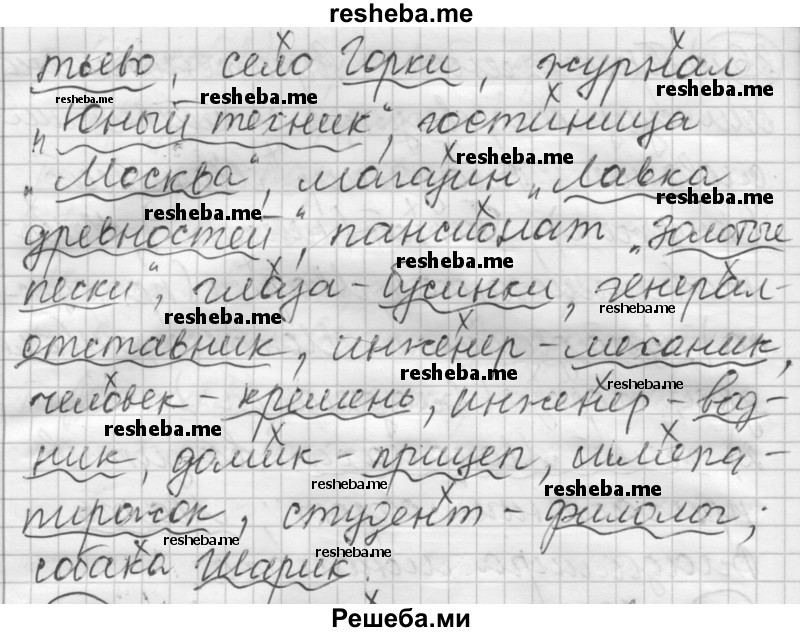 resheba.me
тьево, село Горки, журнал
resheba.me resheba.me resheba.me
„Юный техник“, гостиница
resheba.me
„Москва“, магазин „Лавка
resheba.me resheba.me
древностей“, пансионат „Золотые
resheba.me
пески“, глаза - бусинки, генерал-
resheba.me resheba.me
отставник, инженер - механик,
resheba.me resheba.me
человек - кремень, инженер - вод-
resheba.me
ник, домик - прицеп, шляпа -
resheba.me resheba.me
пирожок, студент - филолог;
resheba.me resheba.me
собака Шарик.
Решеба.ми